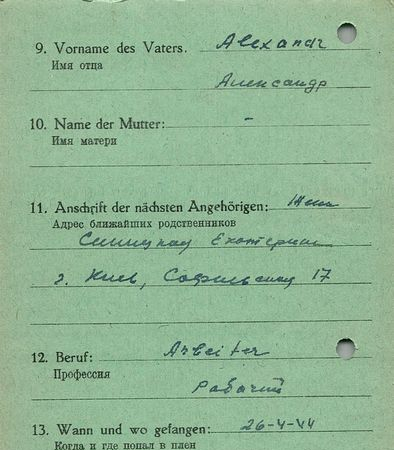 9. Vorname des Vaters. Alexandr
Имя отца
Александр
10. Name der Mutter: -
Имя матери
11. Anschrift der nächsten Angehörigen: Жена
Адрес ближайших родственников
Екатерина
г. Киев, 17
12. Beruf: Arbeiter
Профессия
Рабочий
13. Wann und wo gefangen: 26-4-44
Когда и где попал в плен